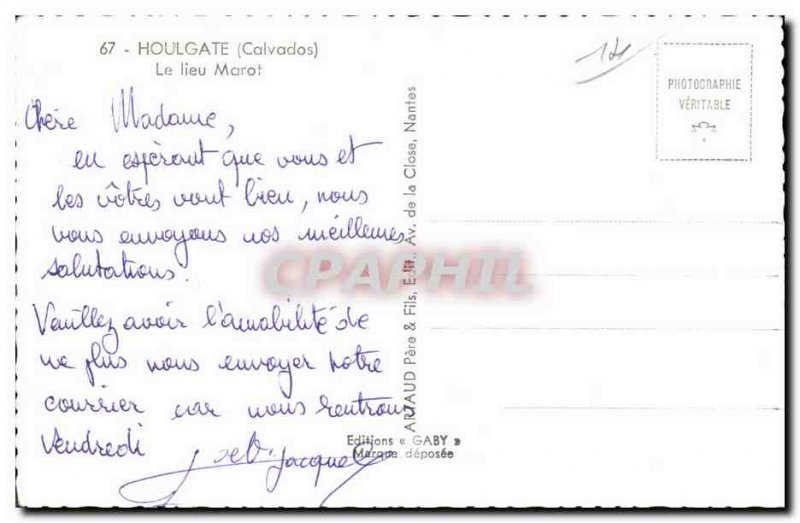 67 - HOULGATE (Calvados)
Le lieu Marot
Chère Madame,
en espérant que vous et
les vôtres vont bien, nous
vous envoyons nos meilleures
salutations.
Veuillez avoir l'amabilité de
ne plus nous envoyer notre
courrier car nous rentrons
Vendredi
Jacques
PHOTOGRAPHIE
VÉRITABLE
ARTAUD Père & Fils, Edit., Av. de la Close, Nantes
Editions « GABY »
Marque déposée
CPAPHIL